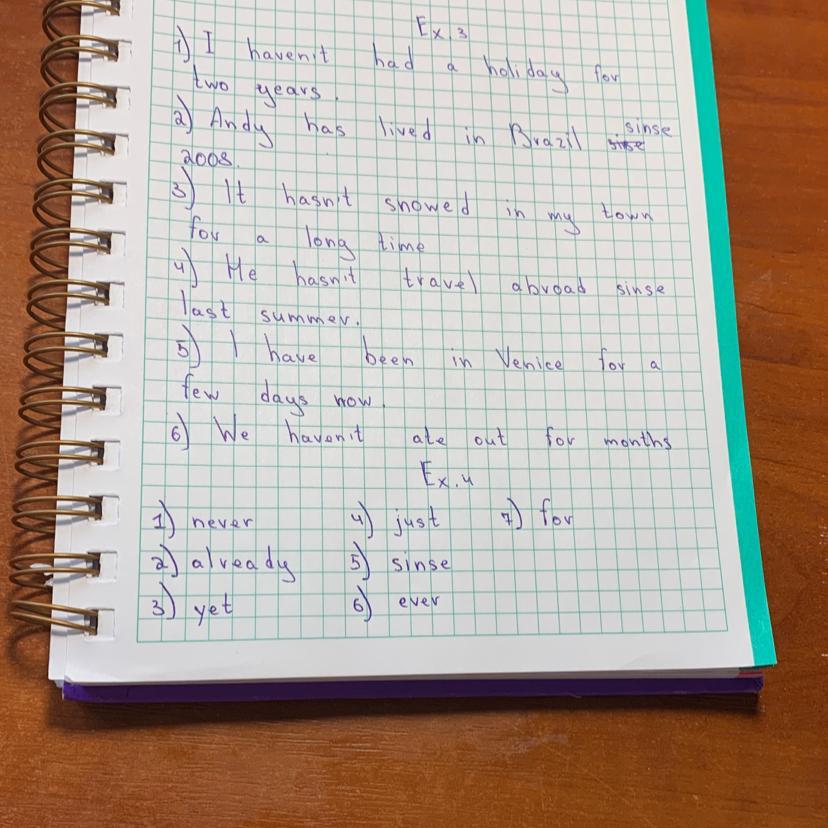 Ex. 3
1) I haven't had a holiday for
two years.
2) Andy has lived in Brazil sinse sinse
2008.
3) It hasn't snowed in my town
for a long time
4) He hasn't travel abroad sinse
last summer.
5) I have been in Venice for a
few days now.
6) We haven't ate out for months
Ex. 4
1) never 4) just 7) for
2) already 5) sinse
3) yet 6) ever